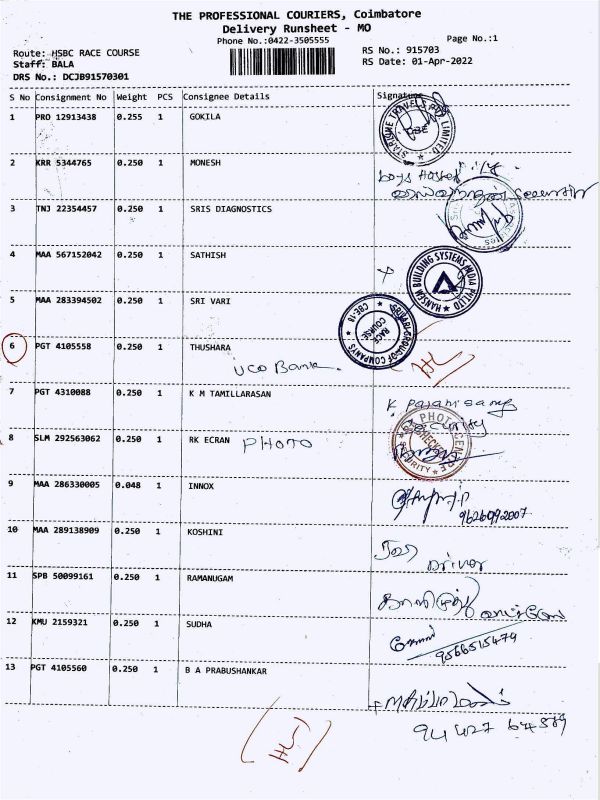 THE PROFESSIONAL COURIERS, Coimbatore
Delivery Runsheet - MO
Phone No.:0422-3505555
Page No.:1
Route: HSBC RACE COURSE
RS No.: 915703
Staff: BALA
RS Date: 01-Apr-2022
DRS No.: DCJB91570301
S No Consignment No Weight PCS Consignee Details Signature
1 PRO 12913438 0.255 1 GOKILA
2 KRR 5344765 0.250 1 MONESH
boys Hostel
3 TNJ 22354457 0.250 1 SRIS DIAGNOSTICS
4 MAA 567152042 0.250 1 SATHISH
HANSEM BUILDING SYSTEMS INDIA PVT LTD
5 MAA 283394502 0.250 1 SRI VARI
SRIVARI GROUP OF COMPANY'S
RACE COURSE
CBE-18
6 PGT 4105558 0.250 1 THUSHARA
UCO Bank
7 PGT 4310088 0.250 1 K M TAMILLARASAN
Security
8 SLM 292563062 0.250 1 RK ECRAN PHOTO
PHOTO CENTRE
CHECKED
SECURITY
9 MAA 286330005 0.048 1 INNOX
9626092007
10 MAA 289138909 0.250 1 KOSHINI
Driver
11 SPB 50099161 0.250 1 RAMANUGAM
12 KMU 2159321 0.250 1 SUDHA
9566515479
13 PGT 4105560 0.250 1 B A PRABUSHANKAR